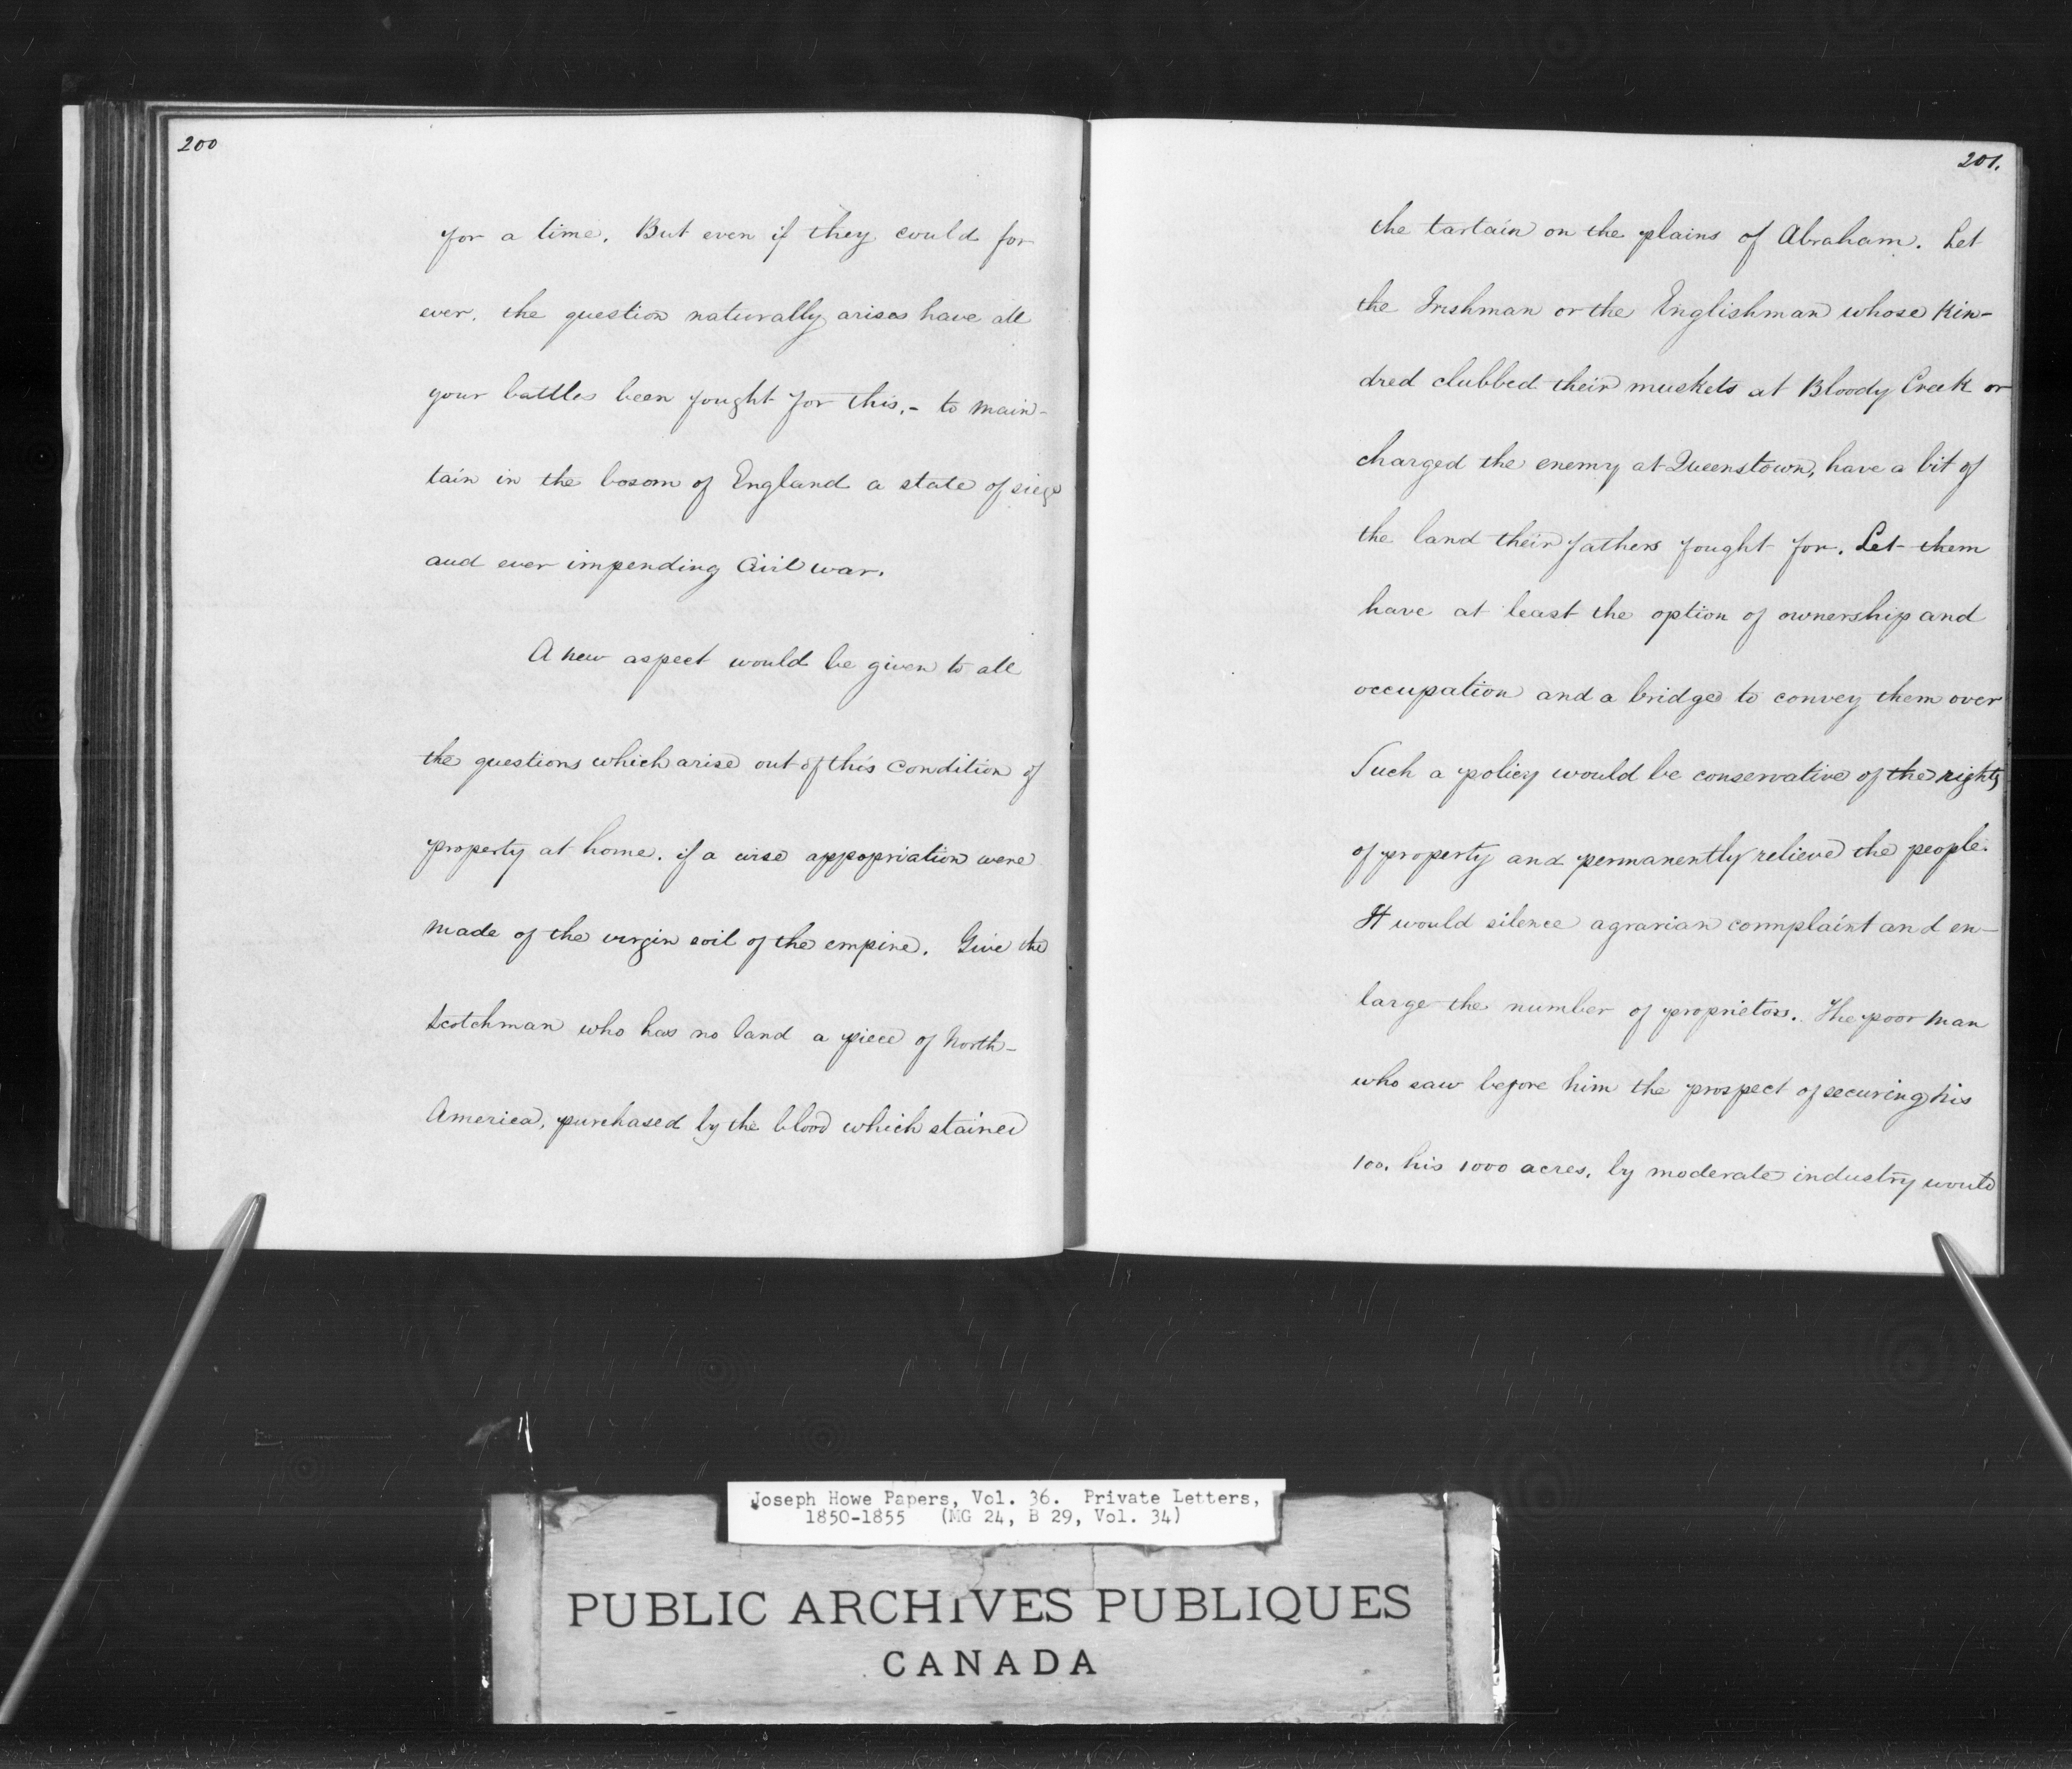 200
for a time. But even if they could for
ever. the question naturally arises have all
your battles been fought for this, - to main-
tain in the bosom of England a state of siege
and ever impending Civil war.
A new aspect would be given to all
the questions which arise out of this condition of
property at home. if a wise appopriation were
made of the virgin soil of the empire. Give the
Scotchman who has no land a piece of North-
America, purchased by the blood which stained
201.
the tartain on the plains of Abraham. Let
the Irishman or the Englishman whose Kin-
dred clubbed their muskets at Bloody Creek or
charged the enemy at Queenstown, have a bit of
the land their fathers fought for. Let them
have at least the option of ownership and
occupation and a bridge to convey them over
Such a policy would be conservative of the rights
of property and permanently relieve the people.
It would silence agrarian complaint and en-
large the number of proprietors. The poor man
who saw before him the prospect of securing his
100. his 1000 acres. by moderate industry would
Joseph Howe Papers, Vol. 36. Private Letters,
1850-1855 (MG 24, B 29, Vol. 34)
PUBLIC ARCHIVES PUBLIQUES
CANADA